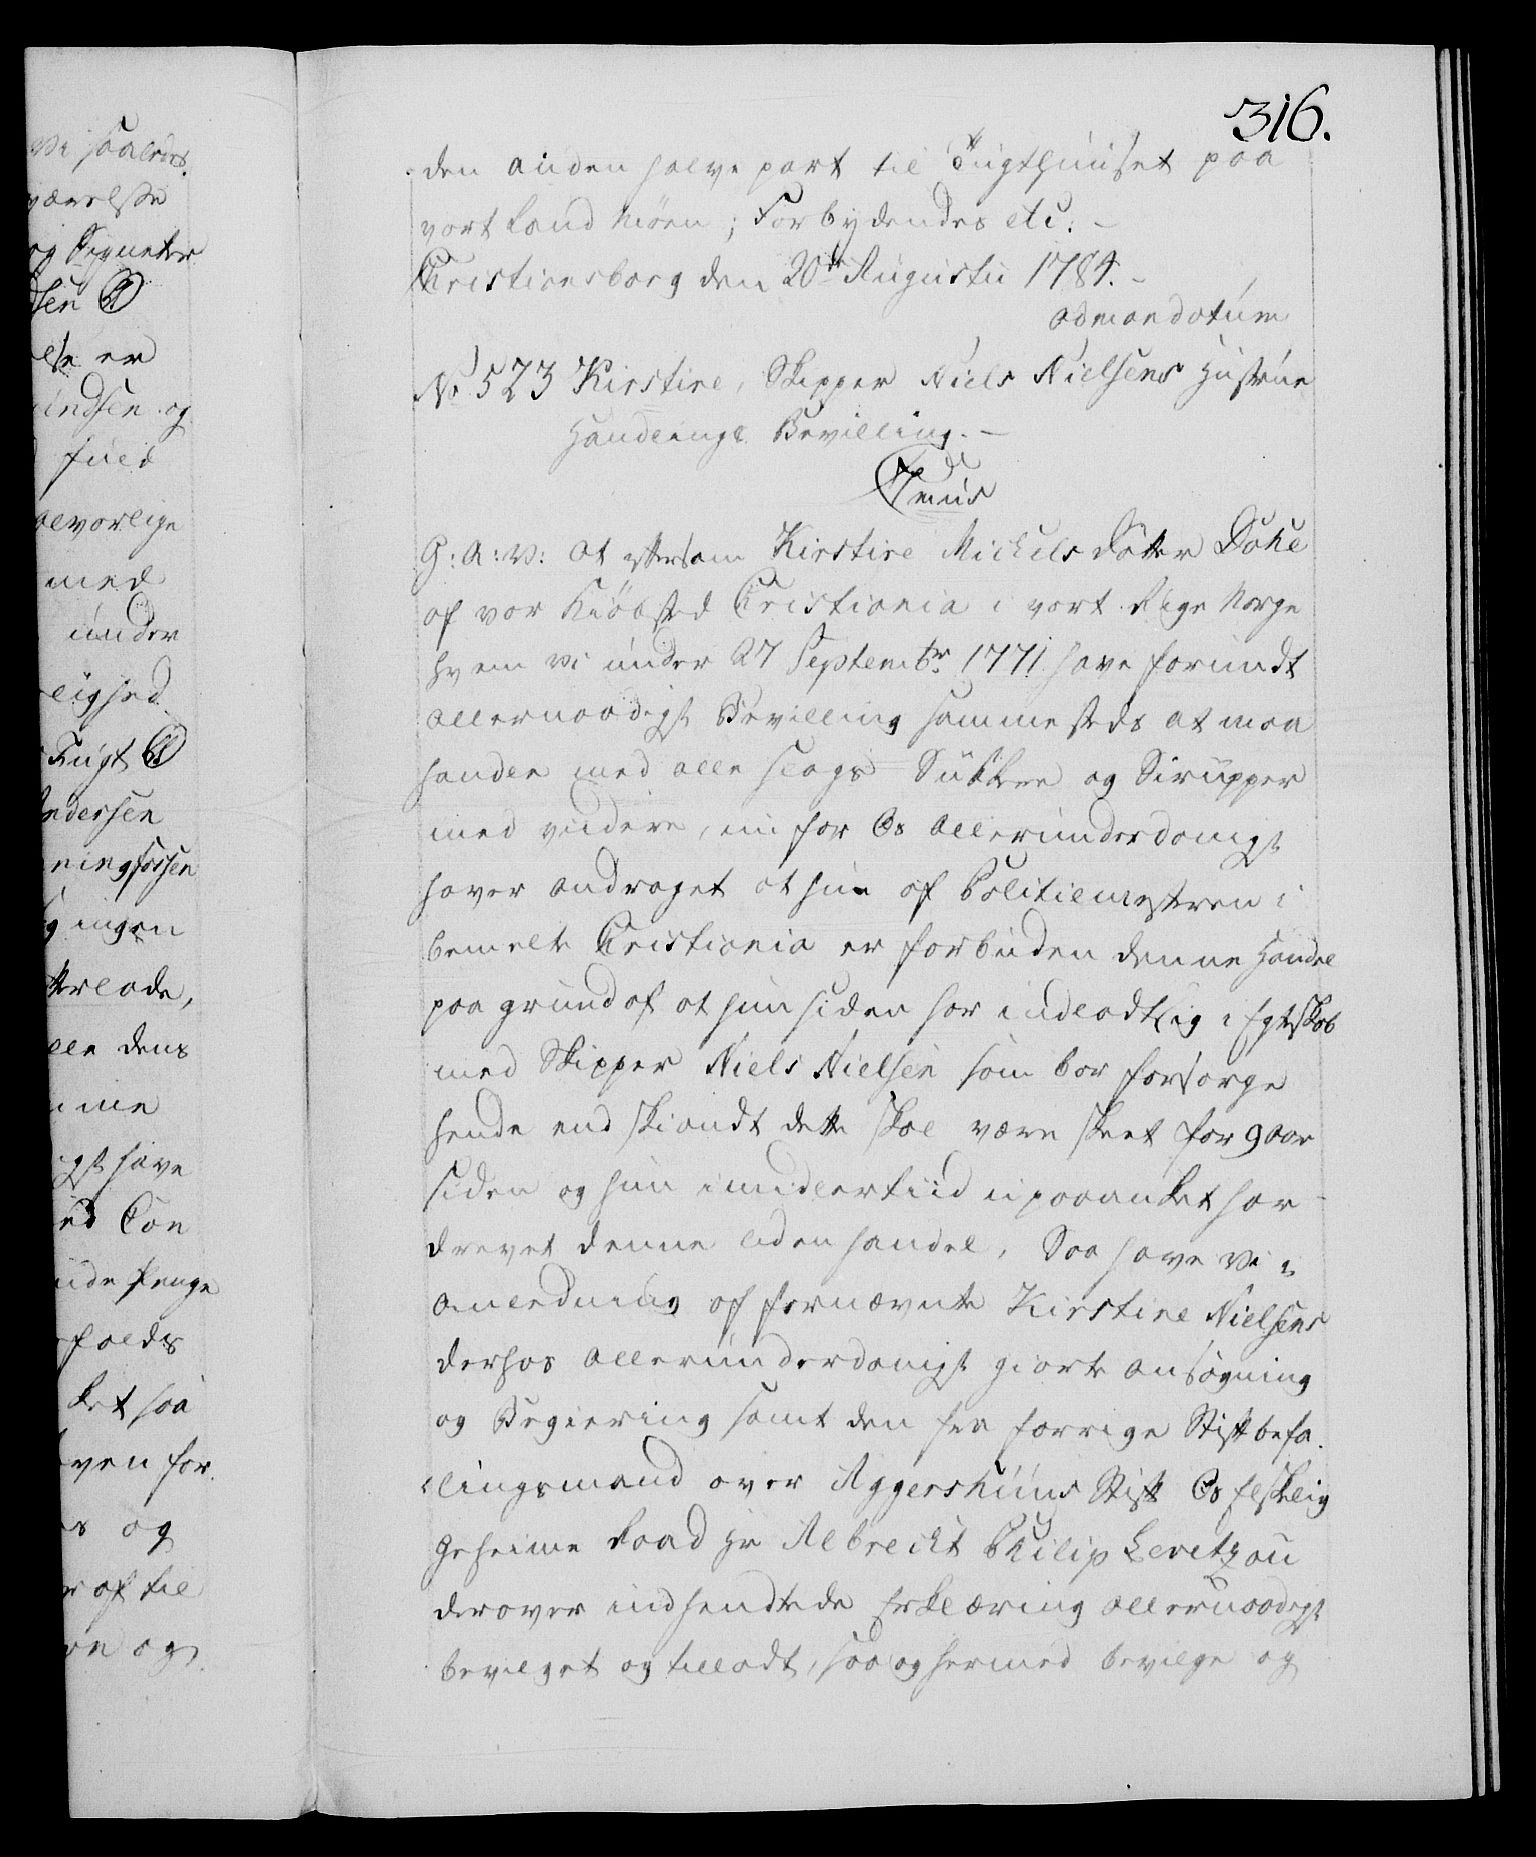 316.
den anden halve part til Tugthuuset paa
vort Land Møen; Forbydendes etc. –
Christiansborg den 20de Augustii 1784. –
admandatum
No 523 Kirstine, Skipper Niels Nielsens Hustrue
Handlings Bevilling. –
C 7mus
G: A: V: at eftersom Kirstine Michels Dotter
af vor Kiøbsted Christiania i vort Rige Norge
hvem vi under 27 Septembr. 1771 have forundt
allernaadigst Bevilling sammesteds at maa
handle med alle slags Sukker og Sirupper
med videre, nu for Os allerunderdanigst
haver andraget at hun af Politiemesteren i
bemelte Christiania er forbuden denne Handel
paa grund af at hun siden har indladt sig i Egteskab
med Skipper Niels Nielsen som bør forsørge
hende endskiøndt dette skal være skeet for 9 aar
siden og hun imidlertiid upaaanket har
drevet denne liden handel, Saa have Vi i
anledning af fornævnte Kirstine Nielsens
derhos allerunderdanigst giorte ansøgning
og Begiering samt den fra forrige Stiftbefa-
lingsmand over Aggershuus Stift Os elskelig
Geheime Raad Hr Albrecht Philip Levetzau
derover indsendte Erklæring allernaadigst
bevilget og tilladt, saa og hermed bevilge og
vi saaledes
værelse
og Signeter
else er
og
fuld
alvorlige
med
under
lighed
Tugt
Andersen
ingen
alle dens
have
Penge
ket saa
oven for
og
af til
og